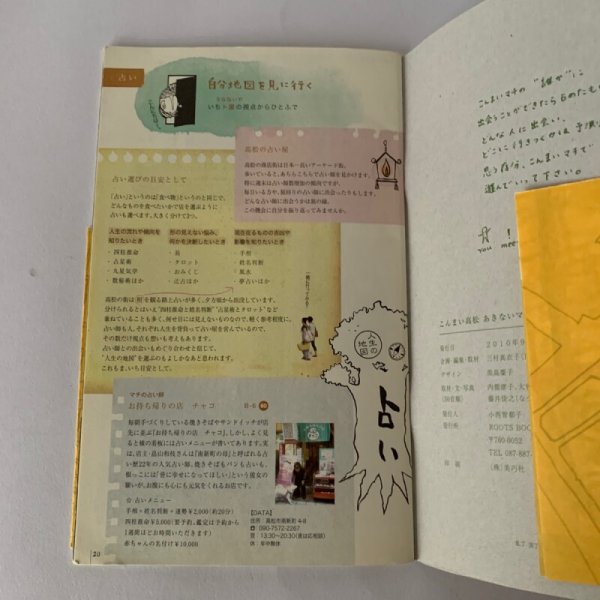 占い
自分地図を見に行く
うらないや
いち占屋の視点からひとふで
高松の占い屋
高松の商店街は日本一長いアーケード街。
歩いていると、あちらこちらで占い師を見かけます。
特に週末は占い師数増加の傾向ですが、
毎日いる方や、昼回りの占い師に出会ったりもします。
どんな占い師に出会うかは旅の縁。
この機会に自分を振り返ってみませんか。
占い選びの目安として
「占い」というのは「食べ物」というのと同じで、
どんなものを食べたいかで店を選ぶように
占いも選べます。大きく分けて3つ。
人生の流れや傾向を
知りたいとき
・四柱推命
・占星術
・九星気学
・数秘術ほか
形の見えない悩み、
何かを決断したいとき
・易
・タロット
・おみくじ
・辻占ほか
現在在るものの吉凶や
影響を知りたいとき
・手相
・姓名判断
・風水
・夢占いほか
高松の街は 形 を観る路上占いが多く、夕方頃から出没しています。
分けられるとはいえ“四柱推命と姓名判断”“占星術とタロット”など
兼ねていることも多く、何せ目には見えないものなので、軽く参考程度に。
占い師も人。それぞれ人生を背負って占い屋を営んでいるので、
その数だけ視点も想いも考えもあります。
占い師との出会いもめぐり合わせと信じて、
“人生の地図”を選ぶのもよしかなあと思われます。
これもま、いち目安として。
人生の地図
占い
マチの占い師
お持ち帰りの店 チャコ
B-6
毎朝手づくりしている焼きそばやサンドイッチが店
先に並ぶ「お持ち帰りの店 チャコ」。しかし、よく見
ると横の看板には占いメニューが書いてあります。実
は、店主・畠山和枝さんは「南新町の母」と呼ばれる占
い歴22年の人気占い師。焼きそばもパンも占いも、
根っこには「皆に幸せになってほしい」という彼女の
願いが。お腹にも心にも元気をくれるお店です。
☆占いメニュー
手相+姓名判断+運勢￥2,000(約20分)
四柱推命￥5,000(要予約、鑑定は予約から
1週間ほどお時間いただきます)
赤ちゃんの名付け￥10,000
【DATA】
住所 高松市南新町4-8
090-7572-2267
営 13:30~20:30(夜は応相談)
休 年中無休
20
こんまいマチの“誰か”に
どんな人に出会い、
思う存分、こんまいマチで
遊んでいって下さい。
こんまい高松 あきないマ
発行日
2010年9
企画・編集・取材
三村真衣子
デザイン
取材・文・写真
内藤郁子、大
(50音順)
藤井俊之
発行人
小西智都子
発行所
ROOTS BOO
〒760-0052
TEL 087-887
印刷
(株)美巧社